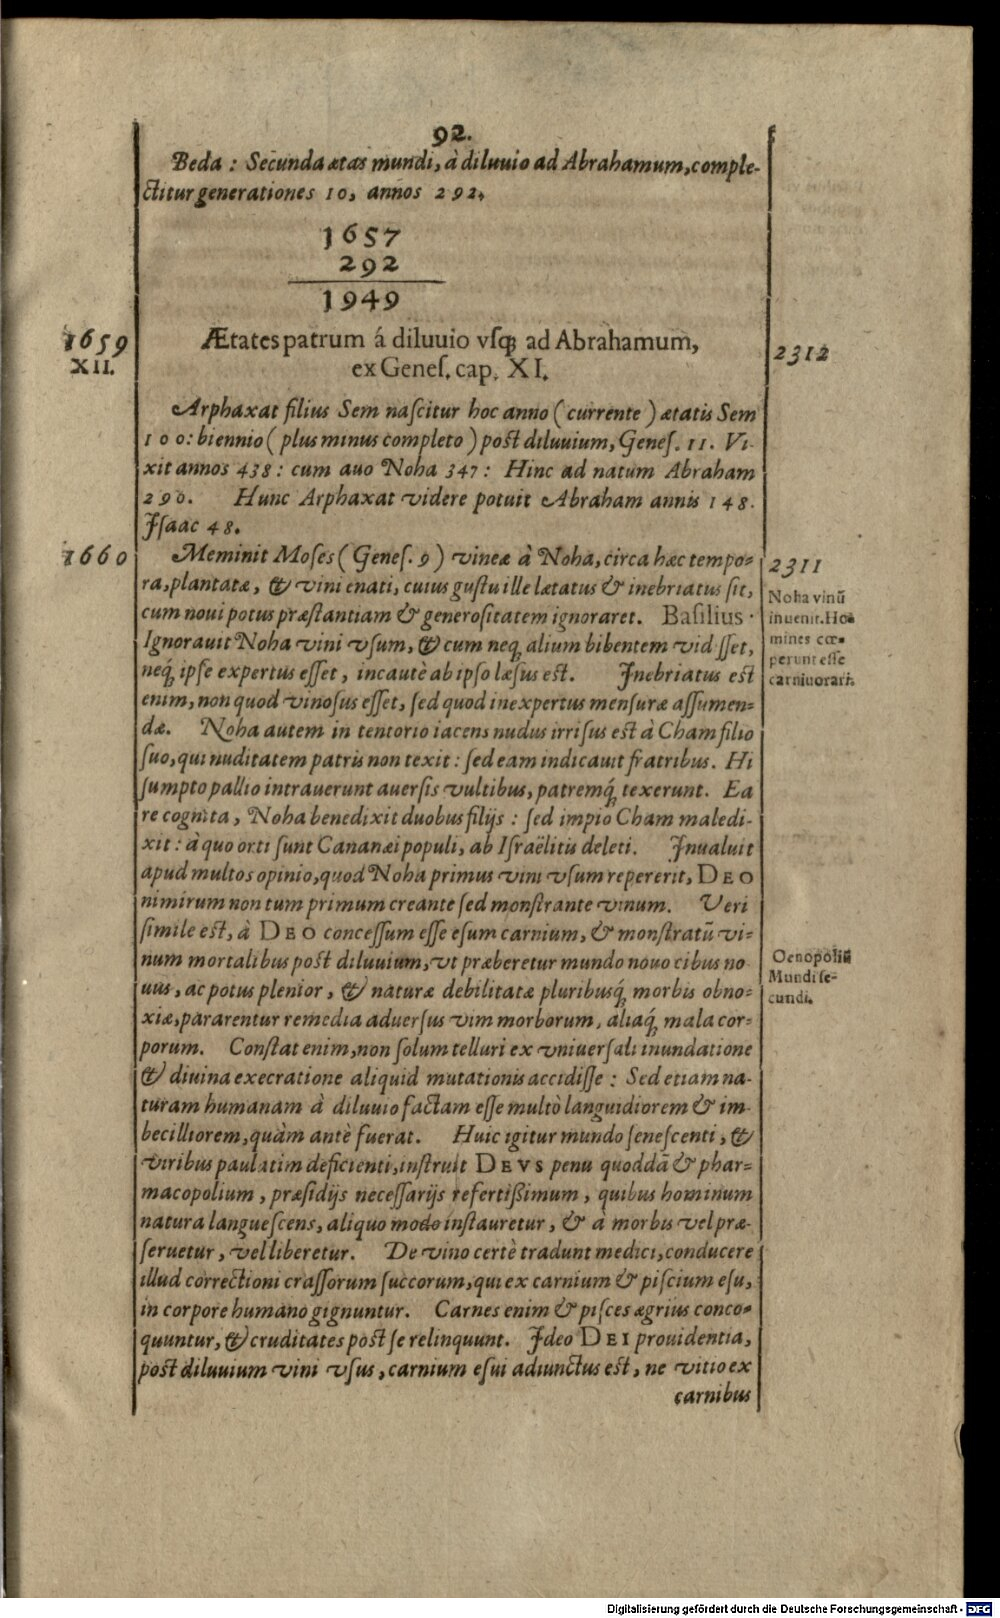 92.
Beda: Secunda ætas mundi, à diluuio ad Abrahamum, comple-
ctitur generationes 10, annos 292.
1657
292
1949
1659
XII.
Ætates patrum á diluuio vsq́; ad Abrahamum,
ex Genes. cap. XI.
2312
Arphaxat filius Sem nascitur hoc anno (currente) ætatis Sem
100: biennio (plus minus completo) post diluuium, Genes. 11. Vi-
xit annos 438: cum auo Noha 347: Hinc ad natum Abraham
290. Hunc Arphaxat videre potuit Abraham annis 148.
Isaac 48.
1660
Meminit Moses (Genes. 9) vineæ à Noha, circa hæc tempo-
ra, plantatæ, & vini enati, cuius gustu ille lætatus & inebriatus sit,
cum noui potus præstantiam & generositatem ignoraret. Basilius.
Ignorauit Noha vini vsum, & cum neq; alium bibentem vidisset,
neq́; ipse expertus esset, incautè ab ipso læsus est. Inebriatus est
enim, non quod vinosus esset, sed quod inexpertus mensuræ assumen-
dæ. Noha autem in tentorio iacens nudus irrisus est à Cham filio
suo, qui nuditatem patris non texit: sed eam indicauit fratribus. Hi
sumpto pallio intrauerunt auersis vultibus, patremq́; texerunt. Ea
re cognita, Noha benedixit duobus filijs: sed impio Cham maledi-
xit: à quo orti sunt Cananæi populi, ab Israëlitis deleti. Inualuit
apud multos opinio, quod Noha primus vini vsum repererit, DEO
nimirum non tum primum creante sed monstrante vinum. Veri
simile est, à DEO concessum esse esum carnium, & monstratū vi-
num mortalibus post diluuium, vt præberetur mundo nouo cibus no
uus, ac potus plenior, & naturæ debilitatæ pluribusq́; morbis obno-
xiæ, pararentur remedia aduersus vim morborum, aliaq́; mala cor-
porum. Constat enim, non solum telluri ex vniuersali inundatione
& diuina execratione aliquid mutationis accidisse: Sed etiam na-
turam humanam à diluuio factam esse multò languidiorem & im-
becilliorem, quàm antè fuerat. Huic igitur mundo senescenti, &
viribus paulatim deficienti, instruit DEVS penu quoddã & phar-
macopolium, præsidijs necessarijs refertißimum, quibus hominum
natura languescens, aliquo modo instauretur, & à morbis vel præ-
seruetur, vel liberetur. De vino certè tradunt medici, conducere
illud correctioni crassorum succorum, qui ex carnium & piscium esu,
in corpore humano gignuntur. Carnes enim & pisces ægrius conco-
quuntur, & cruditates post se relinquunt. Ideo DEI prouidentia,
post diluuium vini vsus, carnium esui adiunctus est, ne vitio ex
carnibus
2311
Noha vinū
inuenit. Ho-
mines cœ-
perunt esse
carniuorari.
Oenopoliū
Mundi se-
cundi.
Digitalisierung gefördert durch die Deutsche Forschungsgemeinschaft - DFG